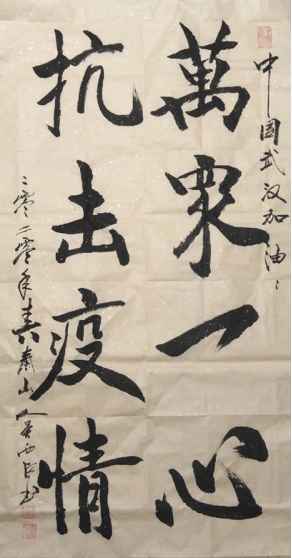 中国武汉加油
萬眾一心
抗击疫情
二零二零年春泰山人